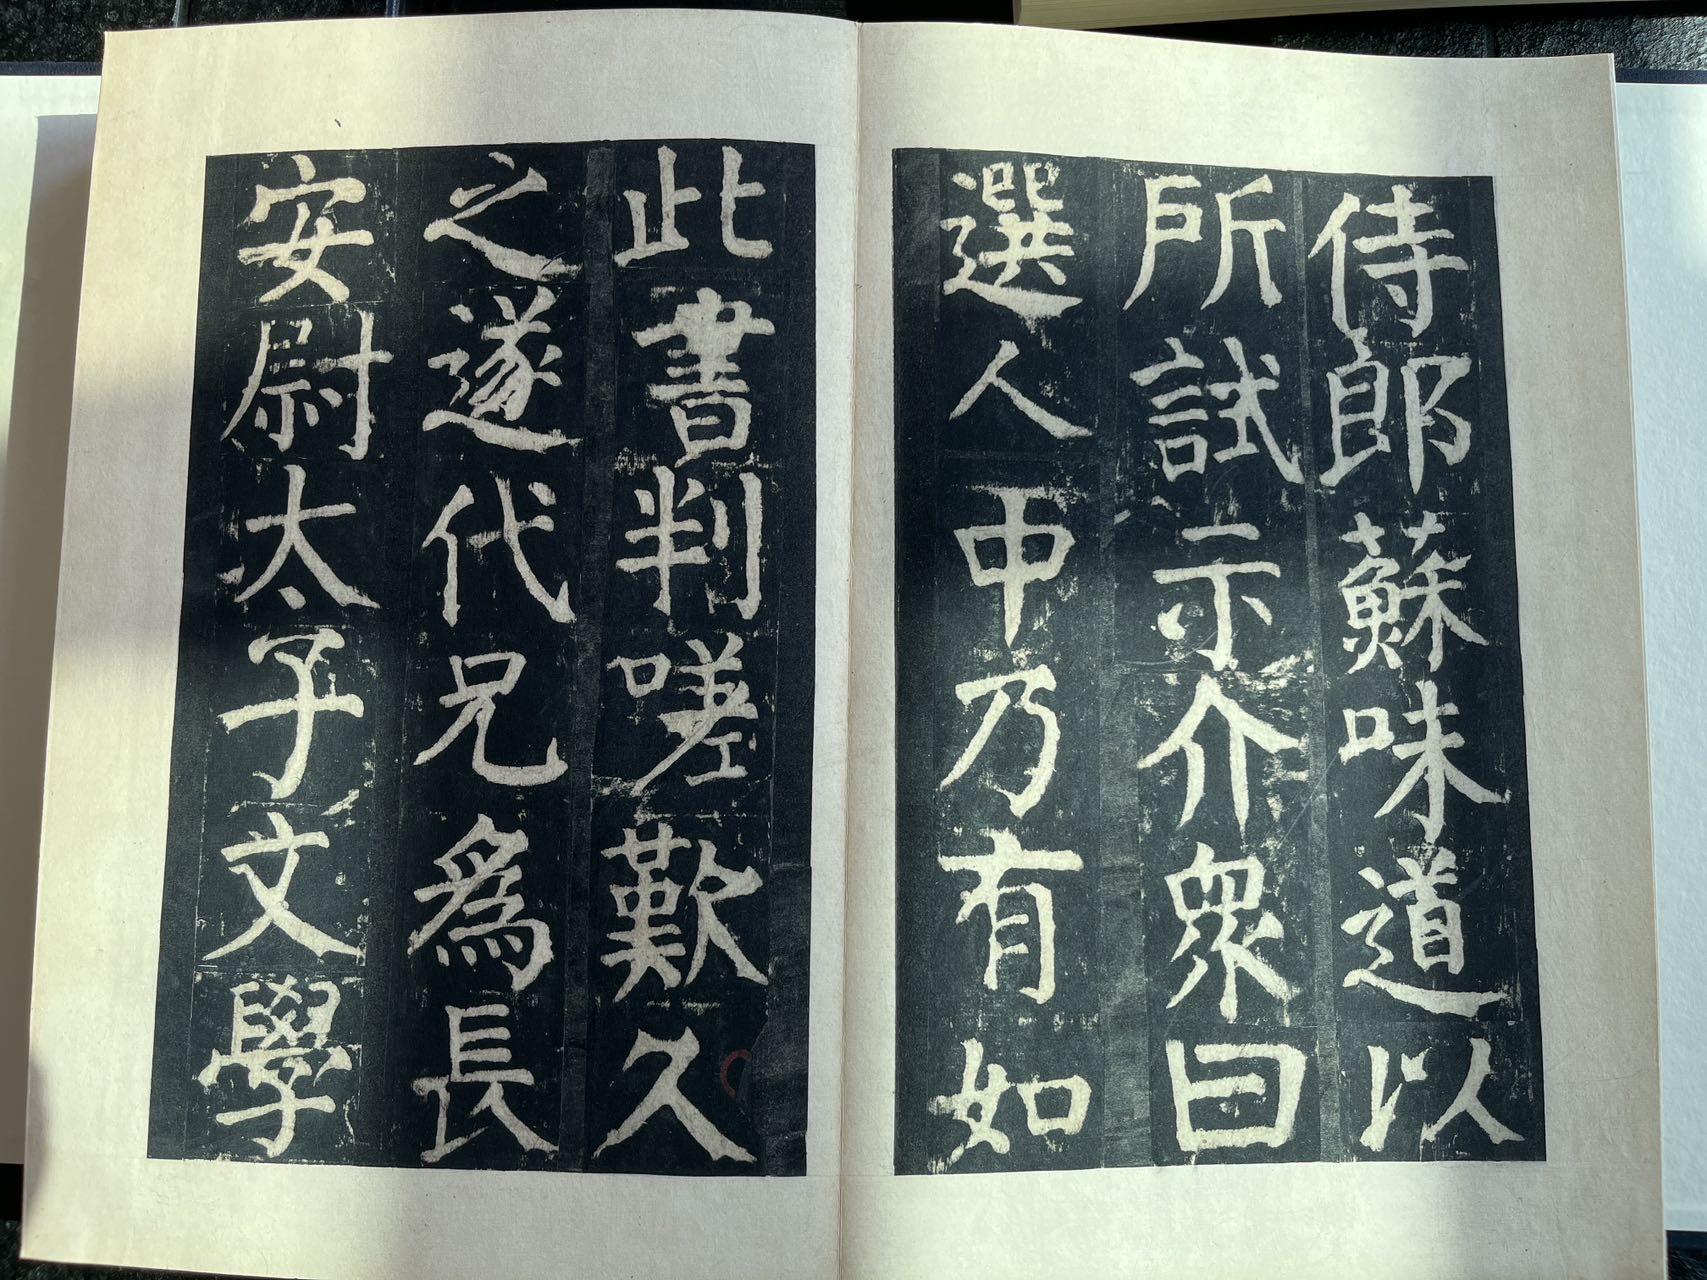 侍郎蘇味道以
所試示介衆曰
選人中乃有如
此書判嗟歎久
之遂代兄爲長
安尉太子文學